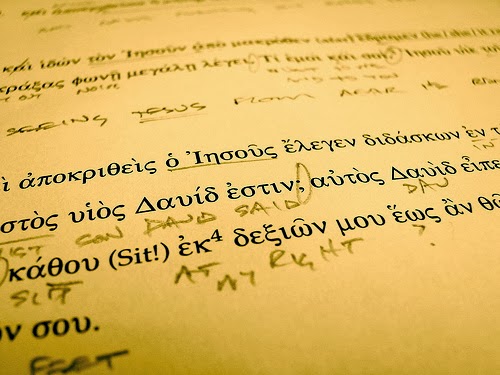 καὶ ἰδὼν τὸν Ἰησοῦν ἀπὸ μακρόθεν ἔδραμεν
κράξας φωνῇ μεγάλῃ λέγει, Τί ἐμοὶ καὶ σοί, Ἰησοῦ υἱὲ
OUT NOISE
SEEING JESUS FROM AFAR HE
ἀποκριθεὶς ὁ Ἰησοῦς ἔλεγεν διδάσκων ἐν
IN
στὸς υἱὸς Δαυίδ ἐστιν; αὐτὸς Δαυὶδ εἶπε
IST SON DAVID SAID DAV
κάθου (Sit!) ἐκ⁴ δεξιῶν μου ἕως ἂν θῶ
SIT AT MY RIGHT ?
ν σου.
FEET